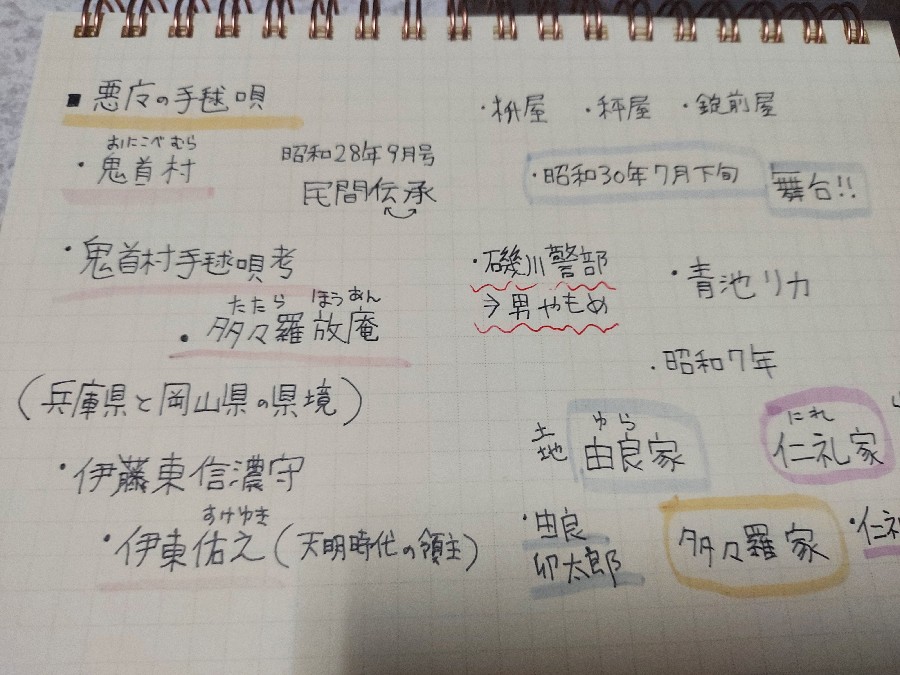 ■ 悪魔の手毬唄
おにこべむら
・鬼首村
昭和28年9月号
民間伝承
・鬼首村手毬唄考
たたら ほうあん
・多々羅放庵
(兵庫県と岡山県の県境)
・伊藤東信濃守
すけゆき
・伊東佑之(天明時代の領主)
・枡屋 ・秤屋 ・錠前屋
・昭和30年7月下旬 舞台!!
・磯川警部
→男やもめ
・青池リカ
・昭和7年
土地
ゆら
由良家
にれ
仁礼家
・由良
卯太郎
多々羅家
・仁礼